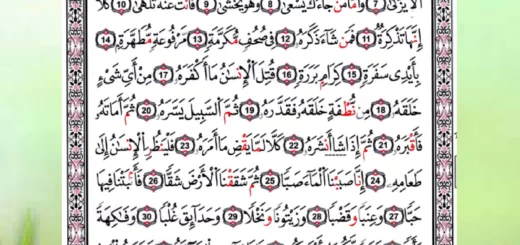 أَلَّا يَزَّكَّىٰ ﴿7﴾ وَأَمَّا مَن جَآءَكَ يَسْعَىٰ ﴿8﴾ وَهُوَ يَخْشَىٰ ﴿9﴾ فَأَنتَ عَنْهُ تَلَهَّىٰ ﴿10﴾ كَلَّآ
إِنَّهَا تَذْكِرَةٌ ﴿11﴾ فَمَن شَآءَ ذَكَرَهُۥ ﴿12﴾ فِى صُحُفٍ مُّكَرَّمَةٍ ﴿13﴾ مَّرْفُوعَةٍ مُّطَهَّرَةٍۭ ﴿14﴾
بِأَيْدِى سَفَرَةٍ ﴿15﴾ كِرَامٍۭ بَرَرَةٍ ﴿16﴾ قُتِلَ ٱلْإِنسَٰنُ مَآ أَكْفَرَهُۥ ﴿17﴾ مِنْ أَىِّ شَىْءٍ
خَلَقَهُۥ ﴿18﴾ مِن نُّطْفَةٍ خَلَقَهُۥ فَقَدَّرَهُۥ ﴿19﴾ ثُمَّ ٱلسَّبِيلَ يَسَّرَهُۥ ﴿20﴾ ثُمَّ أَمَاتَهُۥ
فَأَقْبَرَهُۥ ﴿21﴾ ثُمَّ إِذَا شَآءَ أَنشَرَهُۥ ﴿22﴾ كَلَّا لَمَّا يَقْضِ مَآ أَمَرَهُۥ ﴿23﴾ فَلْيَنظُرِ ٱلْإِنسَٰنُ إِلَىٰ
طَعَامِهِۦٓ ﴿24﴾ أَنَّا صَبَبْنَا ٱلْمَآءَ صَبًّا ﴿25﴾ ثُمَّ شَقَقْنَا ٱلْأَرْضَ شَقًّا ﴿26﴾ فَأَنۢبَتْنَا فِيهَا
حَبًّا ﴿27﴾ وَعِنَبًا وَقَضْبًا ﴿28﴾ وَزَيْتُونًا وَنَخْلًا ﴿29﴾ وَحَدَآئِقَ غُلْبًا ﴿30﴾ وَفَٰكِهَةً